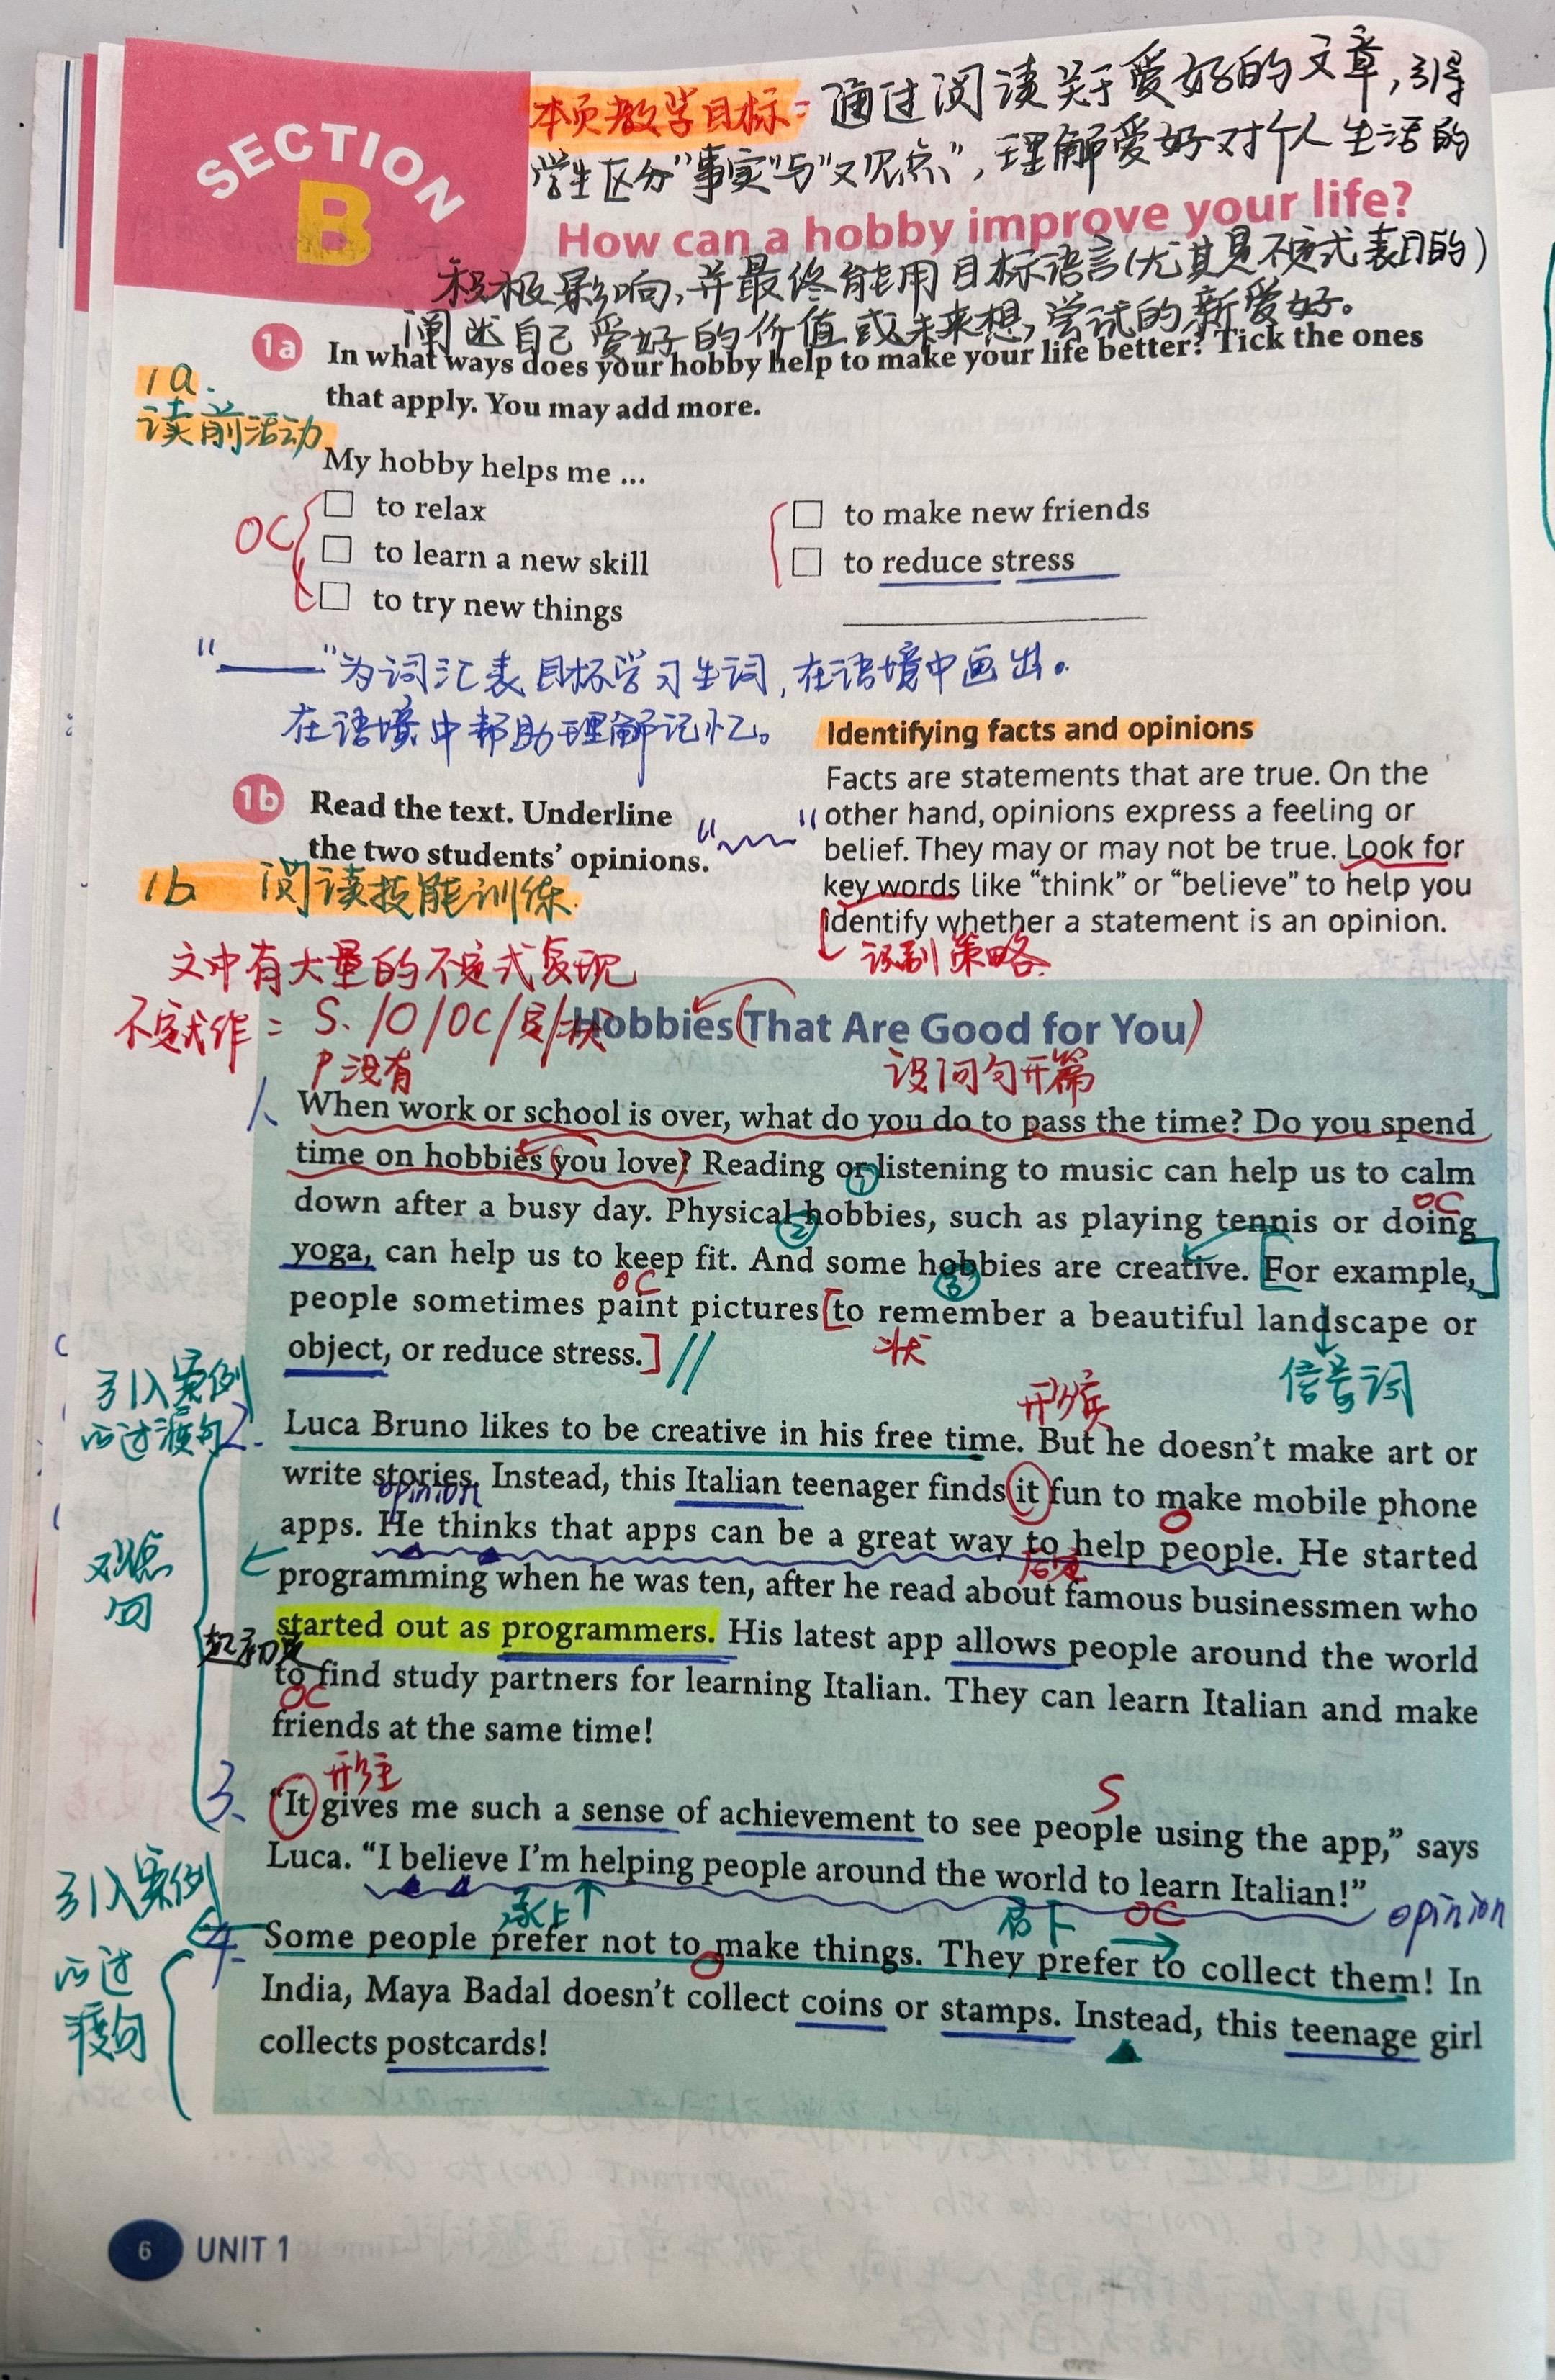 SECTION
B
本页教学目标: 通过阅读关于爱好的文章,引导
学生区分"事实"与"观点",理解爱好对个人生活的
How can a hobby improve your life?
积极影响,并最终能用目标语言(尤其是不定式表目的)
阐述自己爱好的价值或未来想尝试的新爱好。
1a In what ways does your hobby help to make your life better? Tick the ones
that apply. You may add more.
1a.
读前活动
My hobby helps me ...
OC
to relax
to make new friends
to learn a new skill
to reduce stress
to try new things
"——"为词汇表目标学习生词,在语境中画出。
在语境中帮助理解记忆。
1b Read the text. Underline
the two students' opinions.
1b 阅读技能训练.
Identifying facts and opinions
Facts are statements that are true. On the
other hand, opinions express a feeling or
belief. They may or may not be true. Look for
key words like "think" or "believe" to help you
identify whether a statement is an opinion.
识别策略
文中有大量的不定式复现
不定式作: S./O/OC/定/状
P没有
Hobbies (That Are Good for You)
设问句开篇
1、
When work or school is over, what do you do to pass the time? Do you spend
time on hobbies (you love)? Reading or listening to music can help us to calm
①
OC
down after a busy day. Physical hobbies, such as playing tennis or doing
②
yoga, can help us to keep fit. And some hobbies are creative. [For example,]
OC
③
people sometimes paint pictures [to remember a beautiful landscape or
object, or reduce stress.] //
状
信号词
引入案例
的过渡句
2.
形宾
Luca Bruno likes to be creative in his free time. But he doesn't make art or
write stories. Instead, this Italian teenager finds it fun to make mobile phone
opinion
O
apps. He thinks that apps can be a great way to help people. He started
后定
观点
句
programming when he was ten, after he read about famous businessmen who
started out as programmers. His latest app allows people around the world
起初是
to find study partners for learning Italian. They can learn Italian and make
OC
friends at the same time!
3、
形主
S
"It gives me such a sense of achievement to see people using the app," says
Luca. "I believe I'm helping people around the world to learn Italian!"
opinion
OC
承上
启下
引入案例
的过
渡句
4.
Some people prefer not to make things. They prefer to collect them! In
O
India, Maya Badal doesn't collect coins or stamps. Instead, this teenage girl
collects postcards!
6 UNIT 1